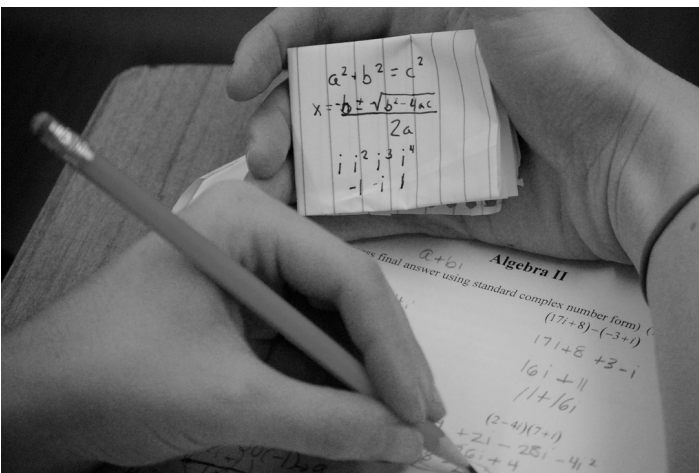 a² + b² = c²
x = -b ± √b²-4ac
2a
i i² i³ i⁴
-1 -i 1
a+bi
Algebra II
final answer using standard complex number form)
(17i+8)–(–3+i)
17i+8 +3-i
16i + 11
11+16i
(2–4i)(7+i)
+2i - 28i - 4i²
6i + 4